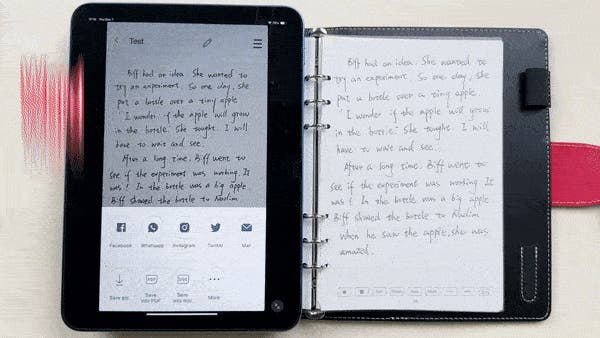 Test
Biff had an idea. She wanted to
try an experiment. So one day, she
put a bottle over a tiny apple.
'I wonder if the apple will grow
in the bottle.' She tought. I will
have to wait and see.
After a long time. Biff went to
see if the experiment was working. It
was! In the bottle was a big apple.
Biff showed the bottle to Nadim
Facebook Whatsapp Instagram Twitter Mail
Save pic Save into PDF Save into More
Biff had an idea. She wanted to
try an experiment. So one day, she
put a bottle over a tiny apple.
'I wonder if the apple will grow
in the bottle.' She tought. I will
have to wait and see.
After a long time. Biff went to
see if the experiment was working. It
was! In the bottle was a big apple
Biff showed the bottle to Nadim
when he saw the apple, she was
amazed.